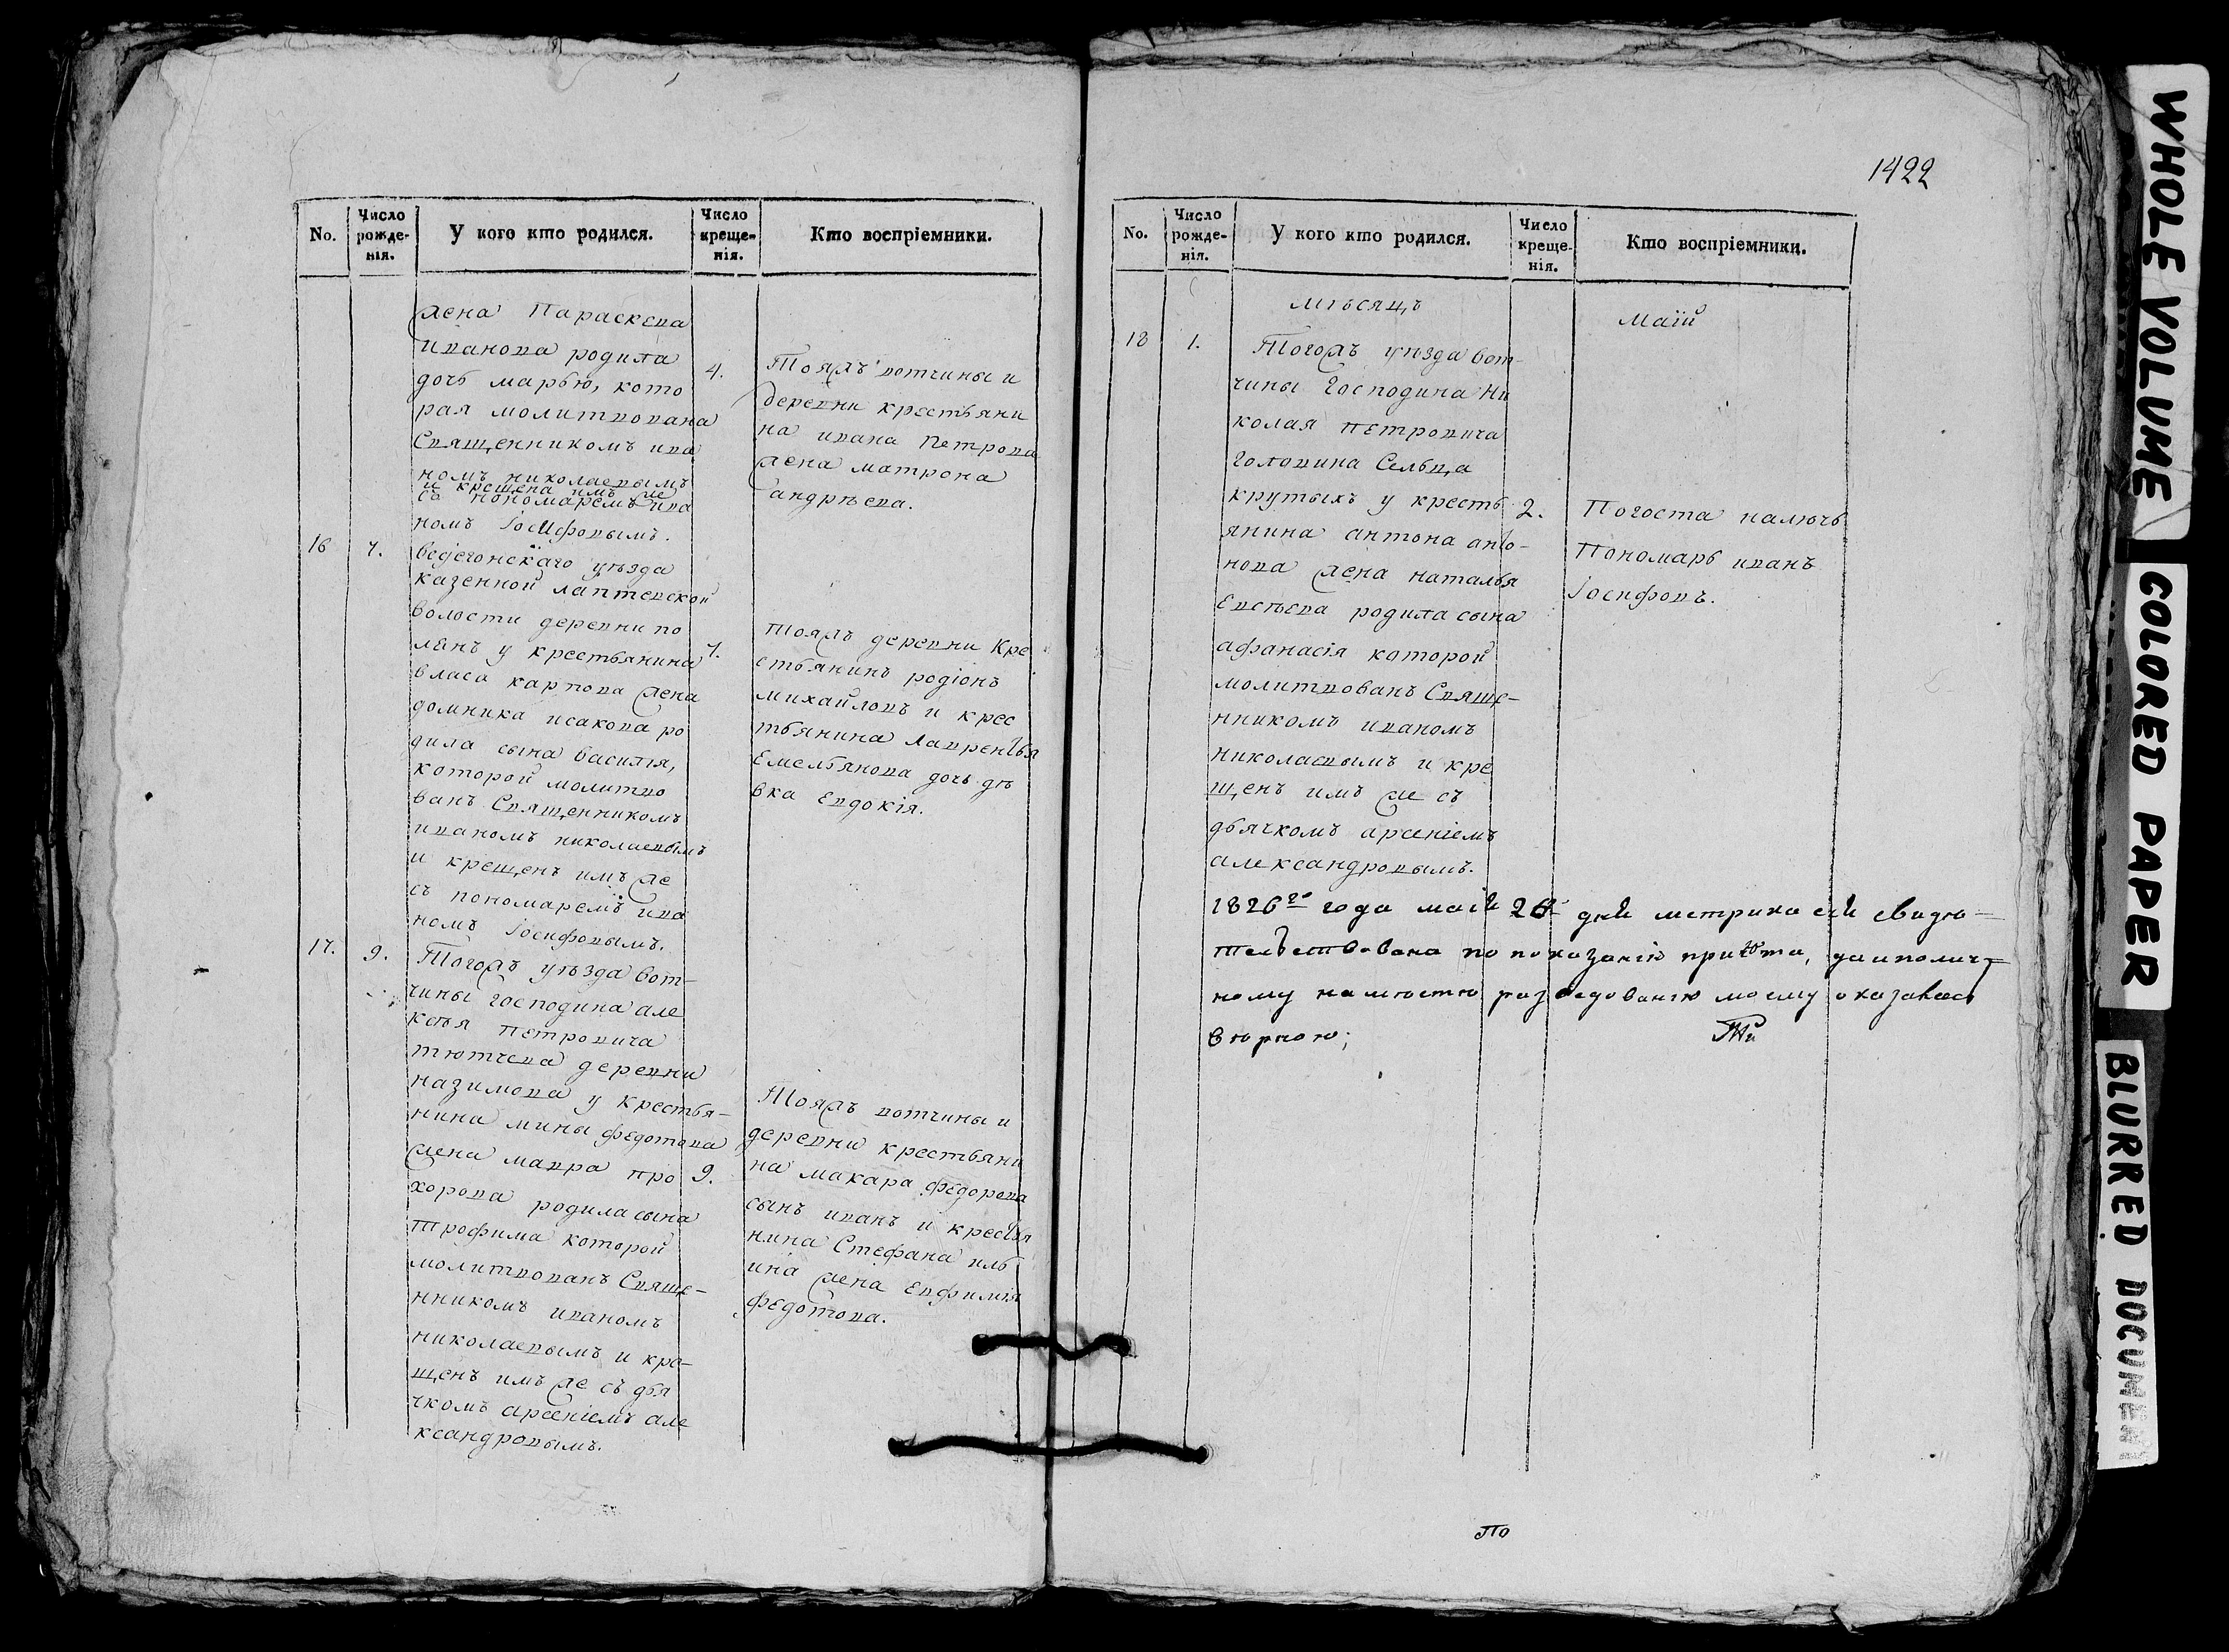 1422
No.
Число рожде-нія.
У кого кто родился.
Число креще-нія.
Кто воспріемники.
жена Параскева
иванова родила
дочь марью, кото
рая молитвована
Священникомъ ива
номъ николаевымъ
и крещена имъ же
съ пономаремъ ива
номъ Іосифовымъ.
4.
Тояжъ вотчины и
деревни крестьяни
на ивана Петрова
жена матрона
андрѣева.
16
7.
весьегонскаго уѣзда
казенной лаптевской
волости деревни по
лянъ у крестьянина
власа карпова жена
домника исакова ро
дила сына василія,
которой молитво
ванъ Священникомъ
иваномъ николаевымъ
и крещенъ имъ же
съ пономаремъ ива
номъ Іосифовымъ.
7.
тояжъ деревни Кре
стьянинъ родіонъ
михайловъ и крес
тьянина Лаврентья
Емельянова дочь дѣ
вка Евдокія.
17.
9.
Тогожъ уѣзда вот-
чины господина але
ксѣя петровича
тютчева деревни
назимова у крестья-
нина мины федотова
жена мавра про
хорова родила сына
трофима которой
молитвованъ Свяще-
нникомъ иваномъ
николаевымъ и кре-
щенъ имъ же съ дья
чкомъ арсеніемъ але
ксандровымъ.
9.
Тояжъ вотчины и
деревни крестьяни
на макара федорова
сынъ иванъ и крестья
нина Стефана иль
ина жена Евфимія
федотова.
No.
Число рожде-нія.
У кого кто родился.
Число креще-нія.
Кто воспріемники.
мѣсяцъ
маій
18
1.
Тогожъ уѣзда вот-
чины Господина Ни
колая петровича
головина Сельца
крутыхъ у кресть
янина антона анто-
нова жена наталья
Евсѣева родила сына
афанасія которой
молитвованъ Свяще-
нникомъ иваномъ
николаевымъ и кре
щенъ имъ же съ
дьячкомъ арсеніемъ
александровымъ.
2.
Погоста налючь
Пономарь иванъ
Іосифовъ.
1826го года маій 26 дня метрика сія свидѣ-
тельствована по показанію причта, да и полич-
ному на мѣстѣ разведованію моему оказалась
вѣрною;
По
WHOLE VOLUME
COLORED PAPER
BLURRED DOCUMENT